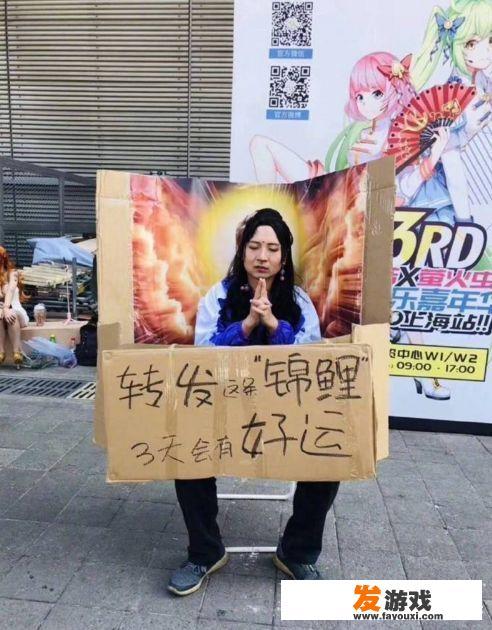 官方微信
官方微博
3RD
X萤火虫
乐嘉年
上海站!!
中心W1/W2
09:00 - 17:00
转发这条"锦鲤"
3天会有好运
发游戏
www.fayouxi.com